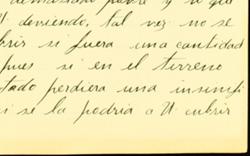 demasiado pobre y si que
U deviendo, tal vez no se
brir si fuera una cantidad
pues si en el terreno
tado perdiera una insinifi
i se la podria a U cubrir